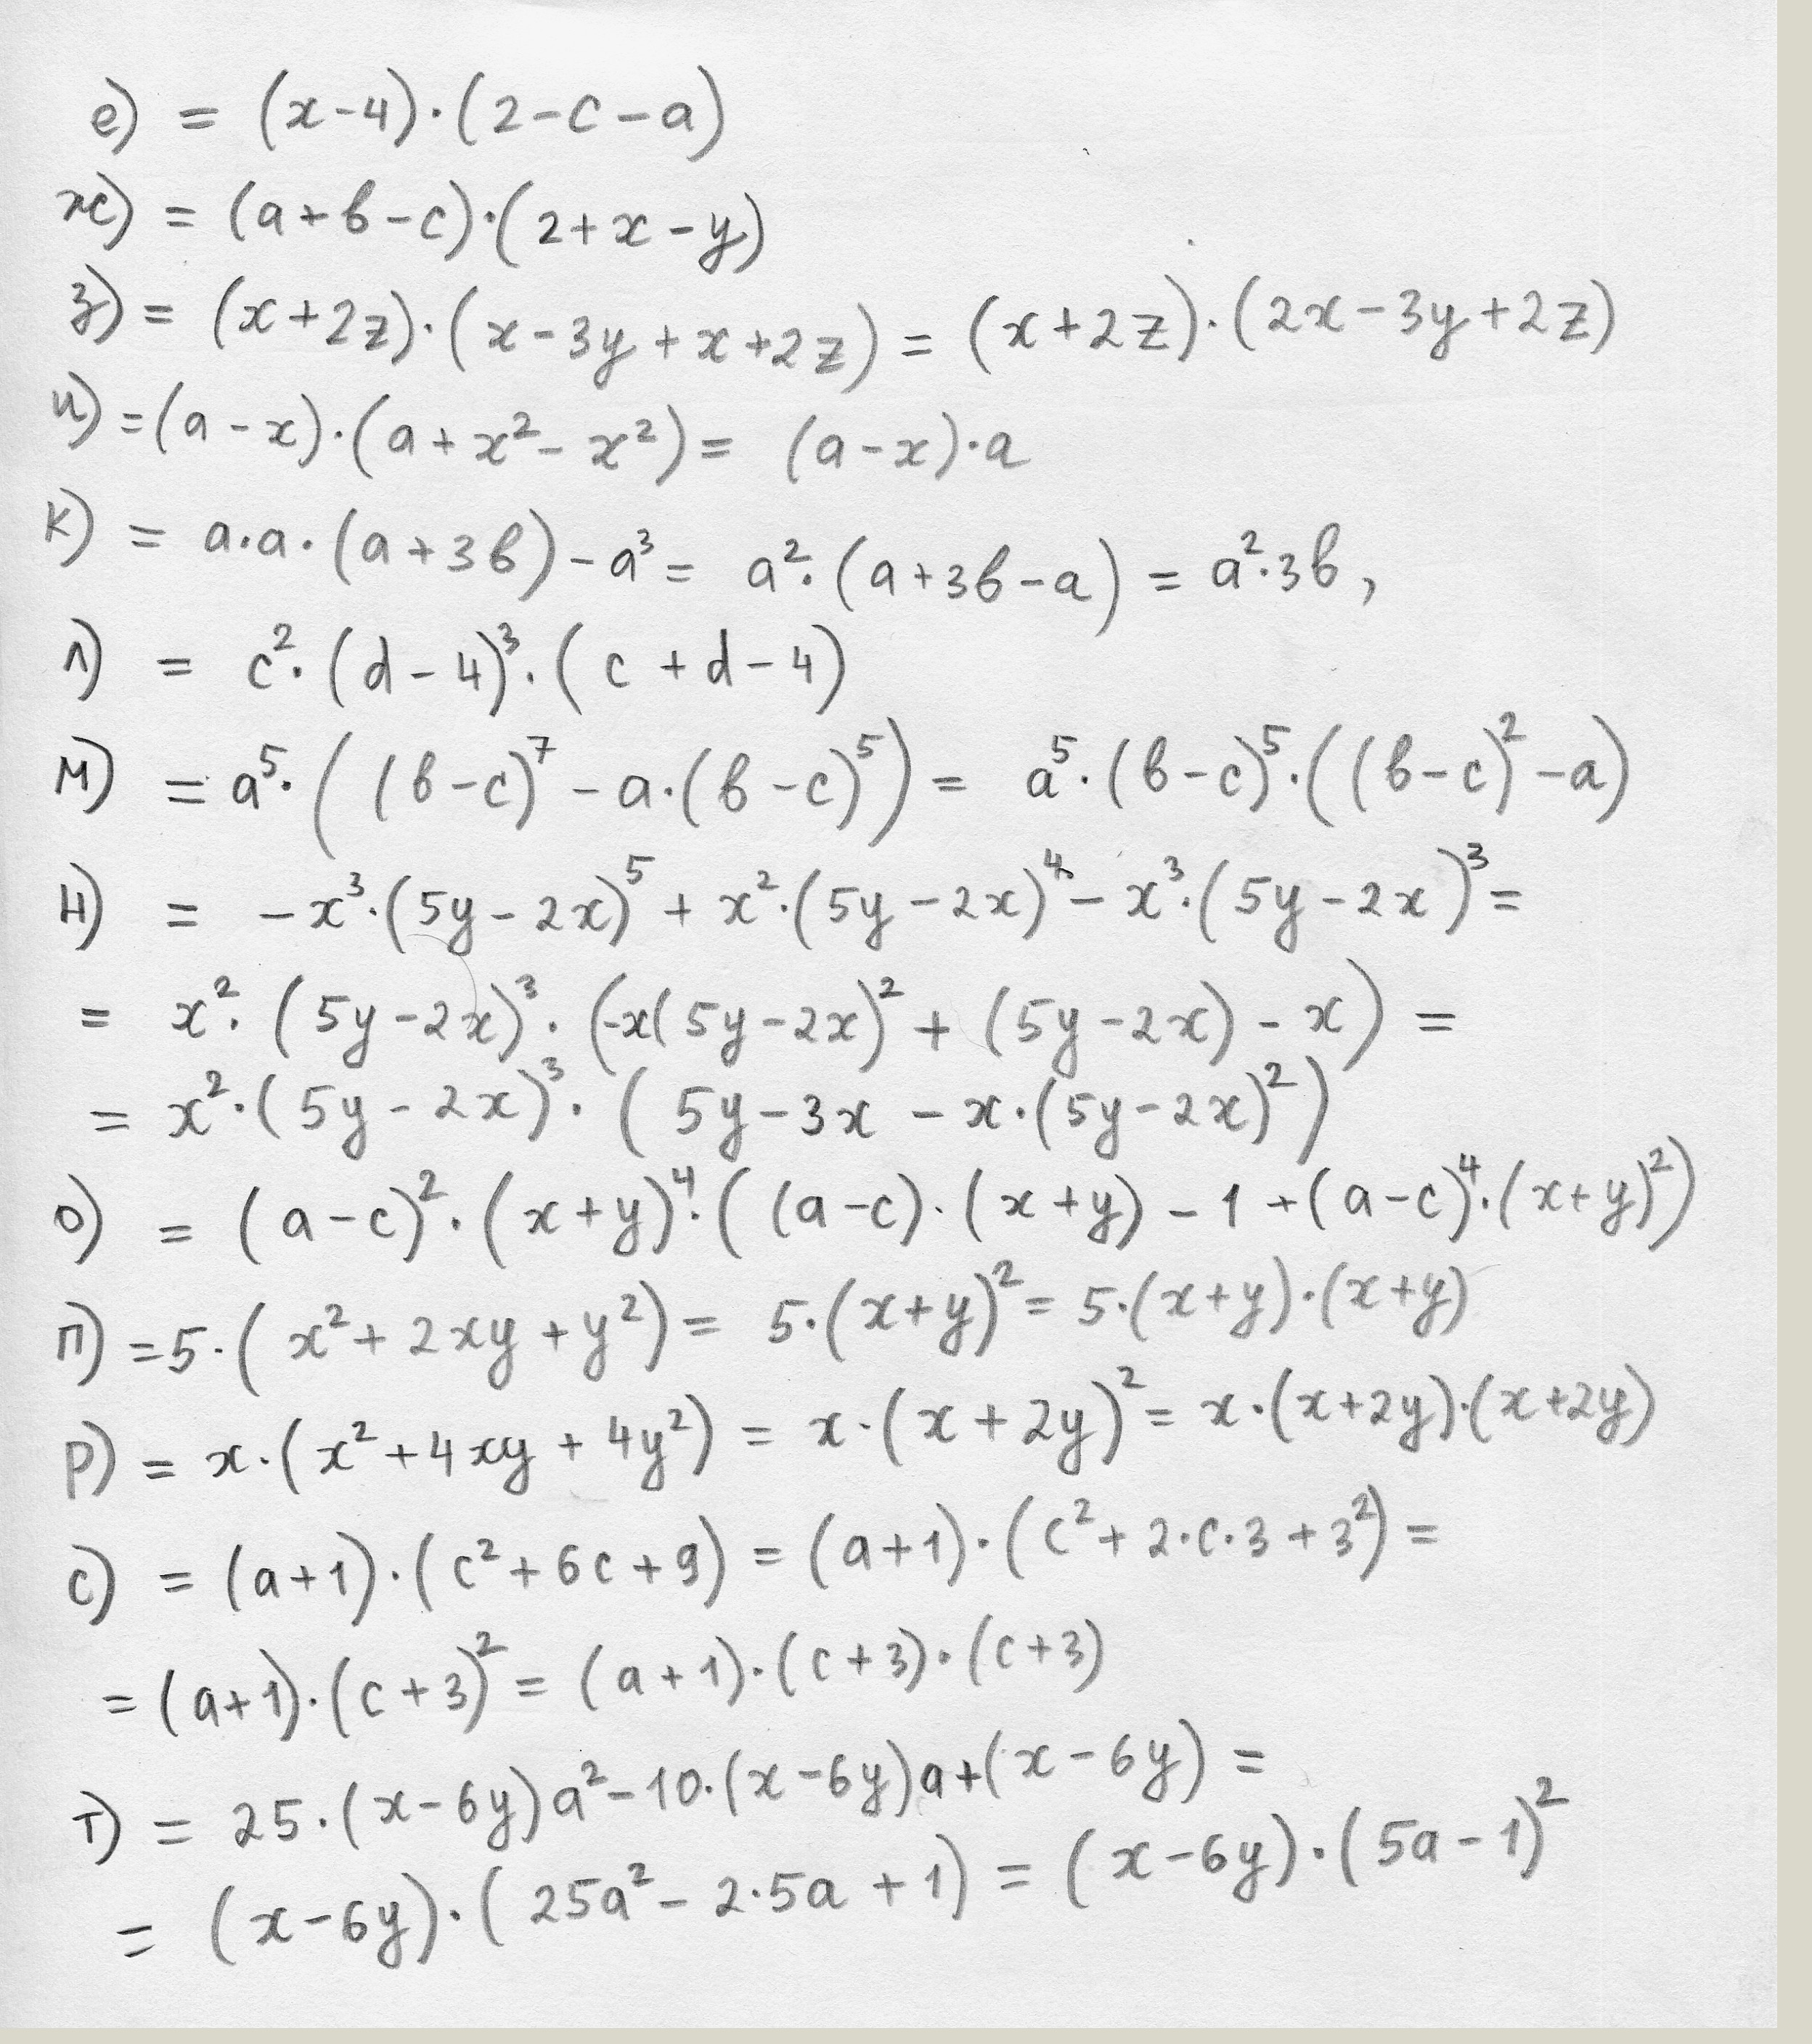 е) = (x-4)·(2-c-a)
ж) = (a+b-c)·(2+x-y)
з) = (x+2z)·(x-3y+x+2z) = (x+2z)·(2x-3y+2z)
и) =(a-x)·(a+x²-x²)= (a-x)·a
к) = a·a·(a+3b)-a³= a²·(a+3b-a) = a²·3b,
л) = c²·(d-4)³·(c+d-4)
м) = a⁵·((b-c)⁷-a·(b-c)⁵) = a⁵·(b-c)⁵·((b-c)²-a)
н) = -x³·(5y-2x)⁵+x²·(5y-2x)⁴-x³·(5y-2x)³=
= x²·(5y-2x)³·(-x(5y-2x)²+(5y-2x)-x) =
= x²·(5y-2x)³·(5y-3x-x·(5y-2x)²)
о) = (a-c)²·(x+y)⁴·((a-c)·(x+y)-1+(a-c)⁴·(x+y)²)
п) =5·(x²+2xy+y²)= 5·(x+y)²= 5·(x+y)·(x+y)
р) = x·(x²+4xy+4y²) = x·(x+2y)²= x·(x+2y)·(x+2y)
с) = (a+1)·(c²+6c+9) = (a+1)·(c²+2·c·3+3²) =
= (a+1)·(c+3)²= (a+1)·(c+3)·(c+3)
т) = 25·(x-6y)a²-10·(x-6y)a+(x-6y) =
= (x-6y)·(25a²-2·5a+1) = (x-6y)·(5a-1)²